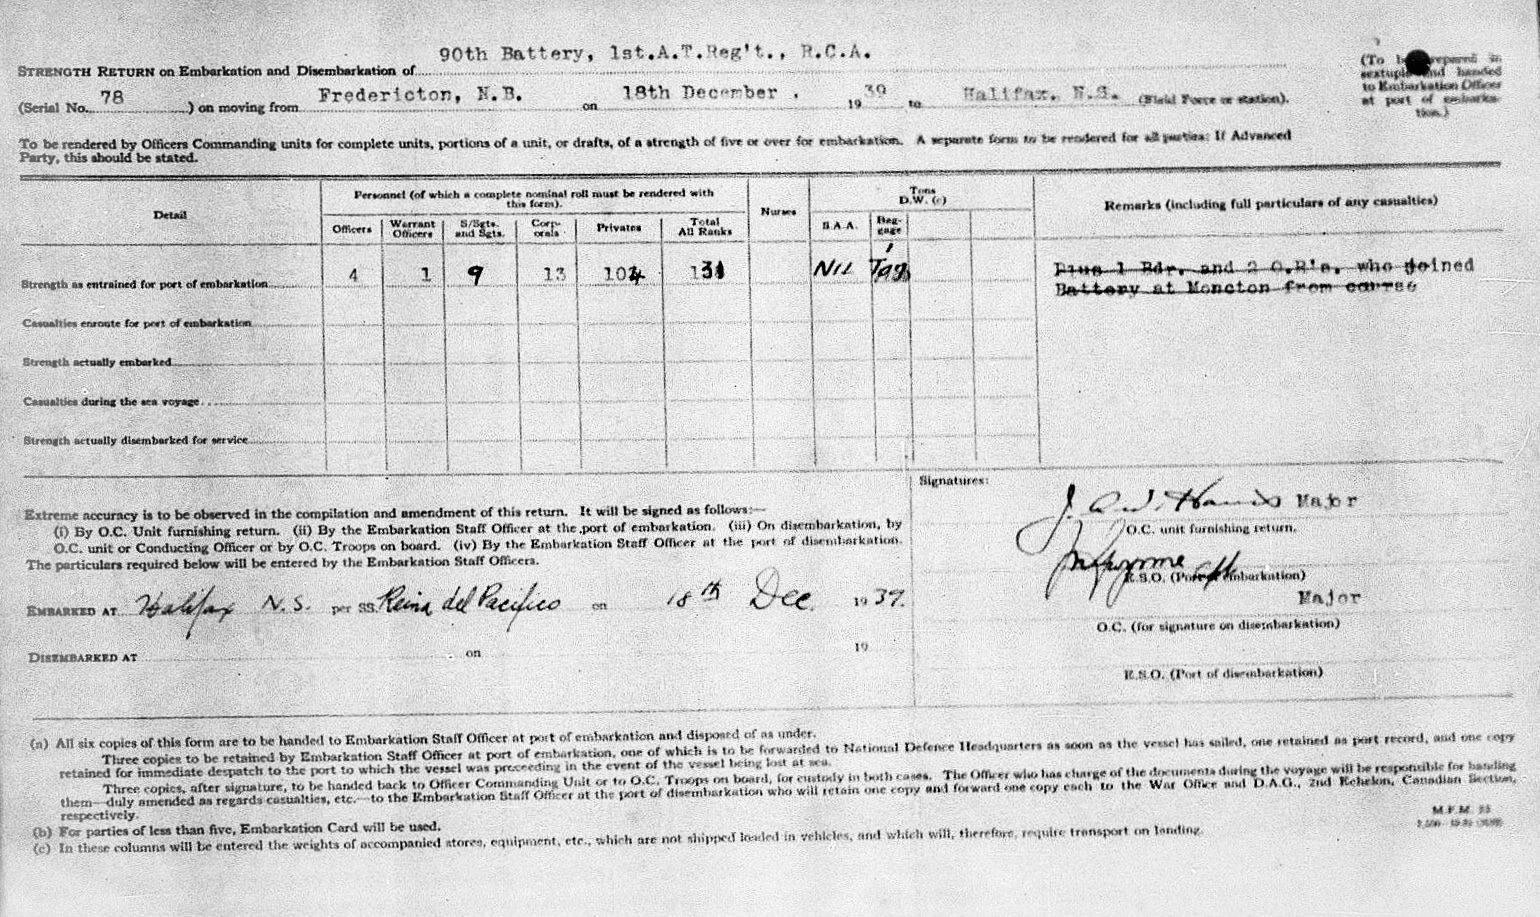 90th Battery, 1st.A.T.Reg't., R.C.A.
STRENGTH RETURN on Embarkation and Disembarkation of
(To be prepared in sextuple and handed to Embarkation Officer at port of embarkation.)
(Serial No. 78 ) on moving from Fredericton, N.B. on 18th December . 19 39 to Halifax, N.S. (Field Force or station).
To be rendered by Officers Commanding units for complete units, portions of a unit, or drafts, of a strength of five or over for embarkation. A separate form to be rendered for all parties: If Advanced
Party, this should be stated.
Detail
Personnel (of which a complete nominal roll must be rendered with
this form).
Officers Warrant Officers S/Sgts. and Sgts. Corp-orals Privates Total All Ranks
Nurses
Tons
D.W. (c)
S.A.A. Bag-gage
Remarks (including full particulars of any casualties)
Strength as entrained for port of embarkation 4 1 9 13 104 131 Nil
Plus 1 Bdr. and 2 O.R's. who joined
Battery at Moncton from course
Casualties enroute for port of embarkation
Strength actually embarked
Casualties during the sea voyage
Strength actually disembarked for service
Signatures:
Extreme accuracy is to be observed in the compilation and amendment of this return. It will be signed as follows:—
(i) By O.C. Unit furnishing return. (ii) By the Embarkation Staff Officer at the port of embarkation. (iii) On disembarkation, by
O.C. unit or Conducting Officer or by O.C. Troops on board. (iv) By the Embarkation Staff Officer at the port of disembarkation.
The particulars required below will be entered by the Embarkation Staff Officers.
Major
O.C. unit furnishing return.
E.S.O. (Port of embarkation)
Major
O.C. (for signature on disembarkation)
E.S.O. (Port of disembarkation)
EMBARKED AT Halifax N.S. per SS. Reina del Pacifico on 18th Dec. 19 39.
DISEMBARKED AT on 19
(a) All six copies of this form are to be handed to Embarkation Staff Officer at port of embarkation and disposed of as under.
Three copies to be retained by Embarkation Staff Officer at port of embarkation, one of which is to be forwarded to National Defence Headquarters as soon as the vessel has sailed, one retained as port record, and one copy
retained for immediate despatch to the port to which the vessel was proceeding in the event of the vessel being lost at sea.
Three copies, after signature, to be handed back to Officer Commanding Unit or to O.C. Troops on board, for custody in both cases. The Officer who has charge of the documents during the voyage will be responsible for handing
them—duly amended as regards casualties, etc.—to the Embarkation Staff Officer at the port of disembarkation who will retain one copy and forward one copy each to the War Office and D.A.G., 2nd Echelon, Canadian Section,
respectively.
(b) For parties of less than five, Embarkation Card will be used.
(c) In these columns will be entered the weights of accompanied stores, equipment, etc., which are not shipped loaded in vehicles, and which will, therefore, require transport on landing.
M.F.M.